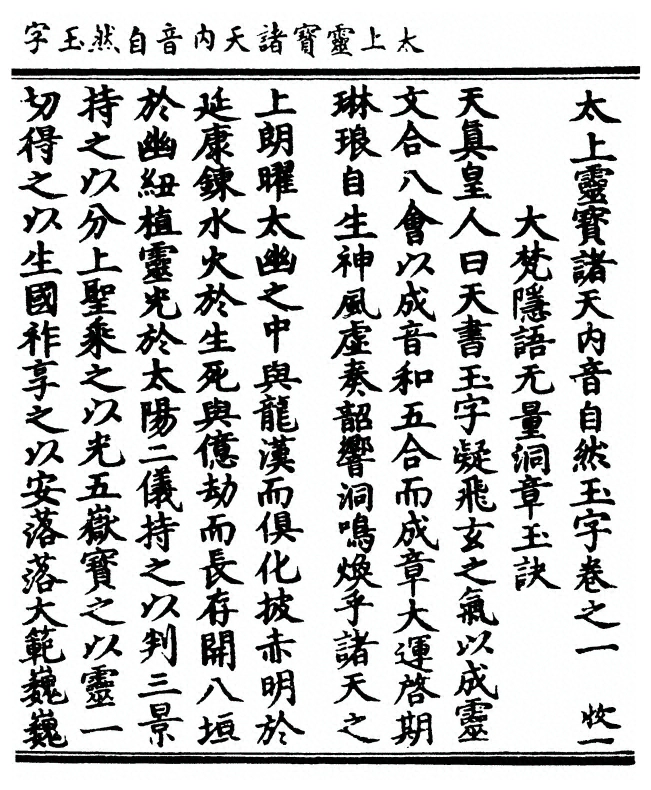 太上靈寶諸天內音自然玉字
太上靈寶諸天內音自然玉字卷之一 收一
大梵隱語无量洞章玉訣
天真皇人曰天書玉字凝飛玄之氣以成靈
文合八會以成音和五合而成章大運啓期
琳琅自生神風虛奏韶響洞鳴煥乎諸天之
上朗曜太幽之中與龍漢而俱化披赤明於
延康鍊水火於生死與億劫而長存開八垣
於幽紐植靈光於太陽二儀持之以判三景
持之以分上聖乘之以光五嶽寶之以靈一
切得之以生國祚享之以安落落大範巍巍